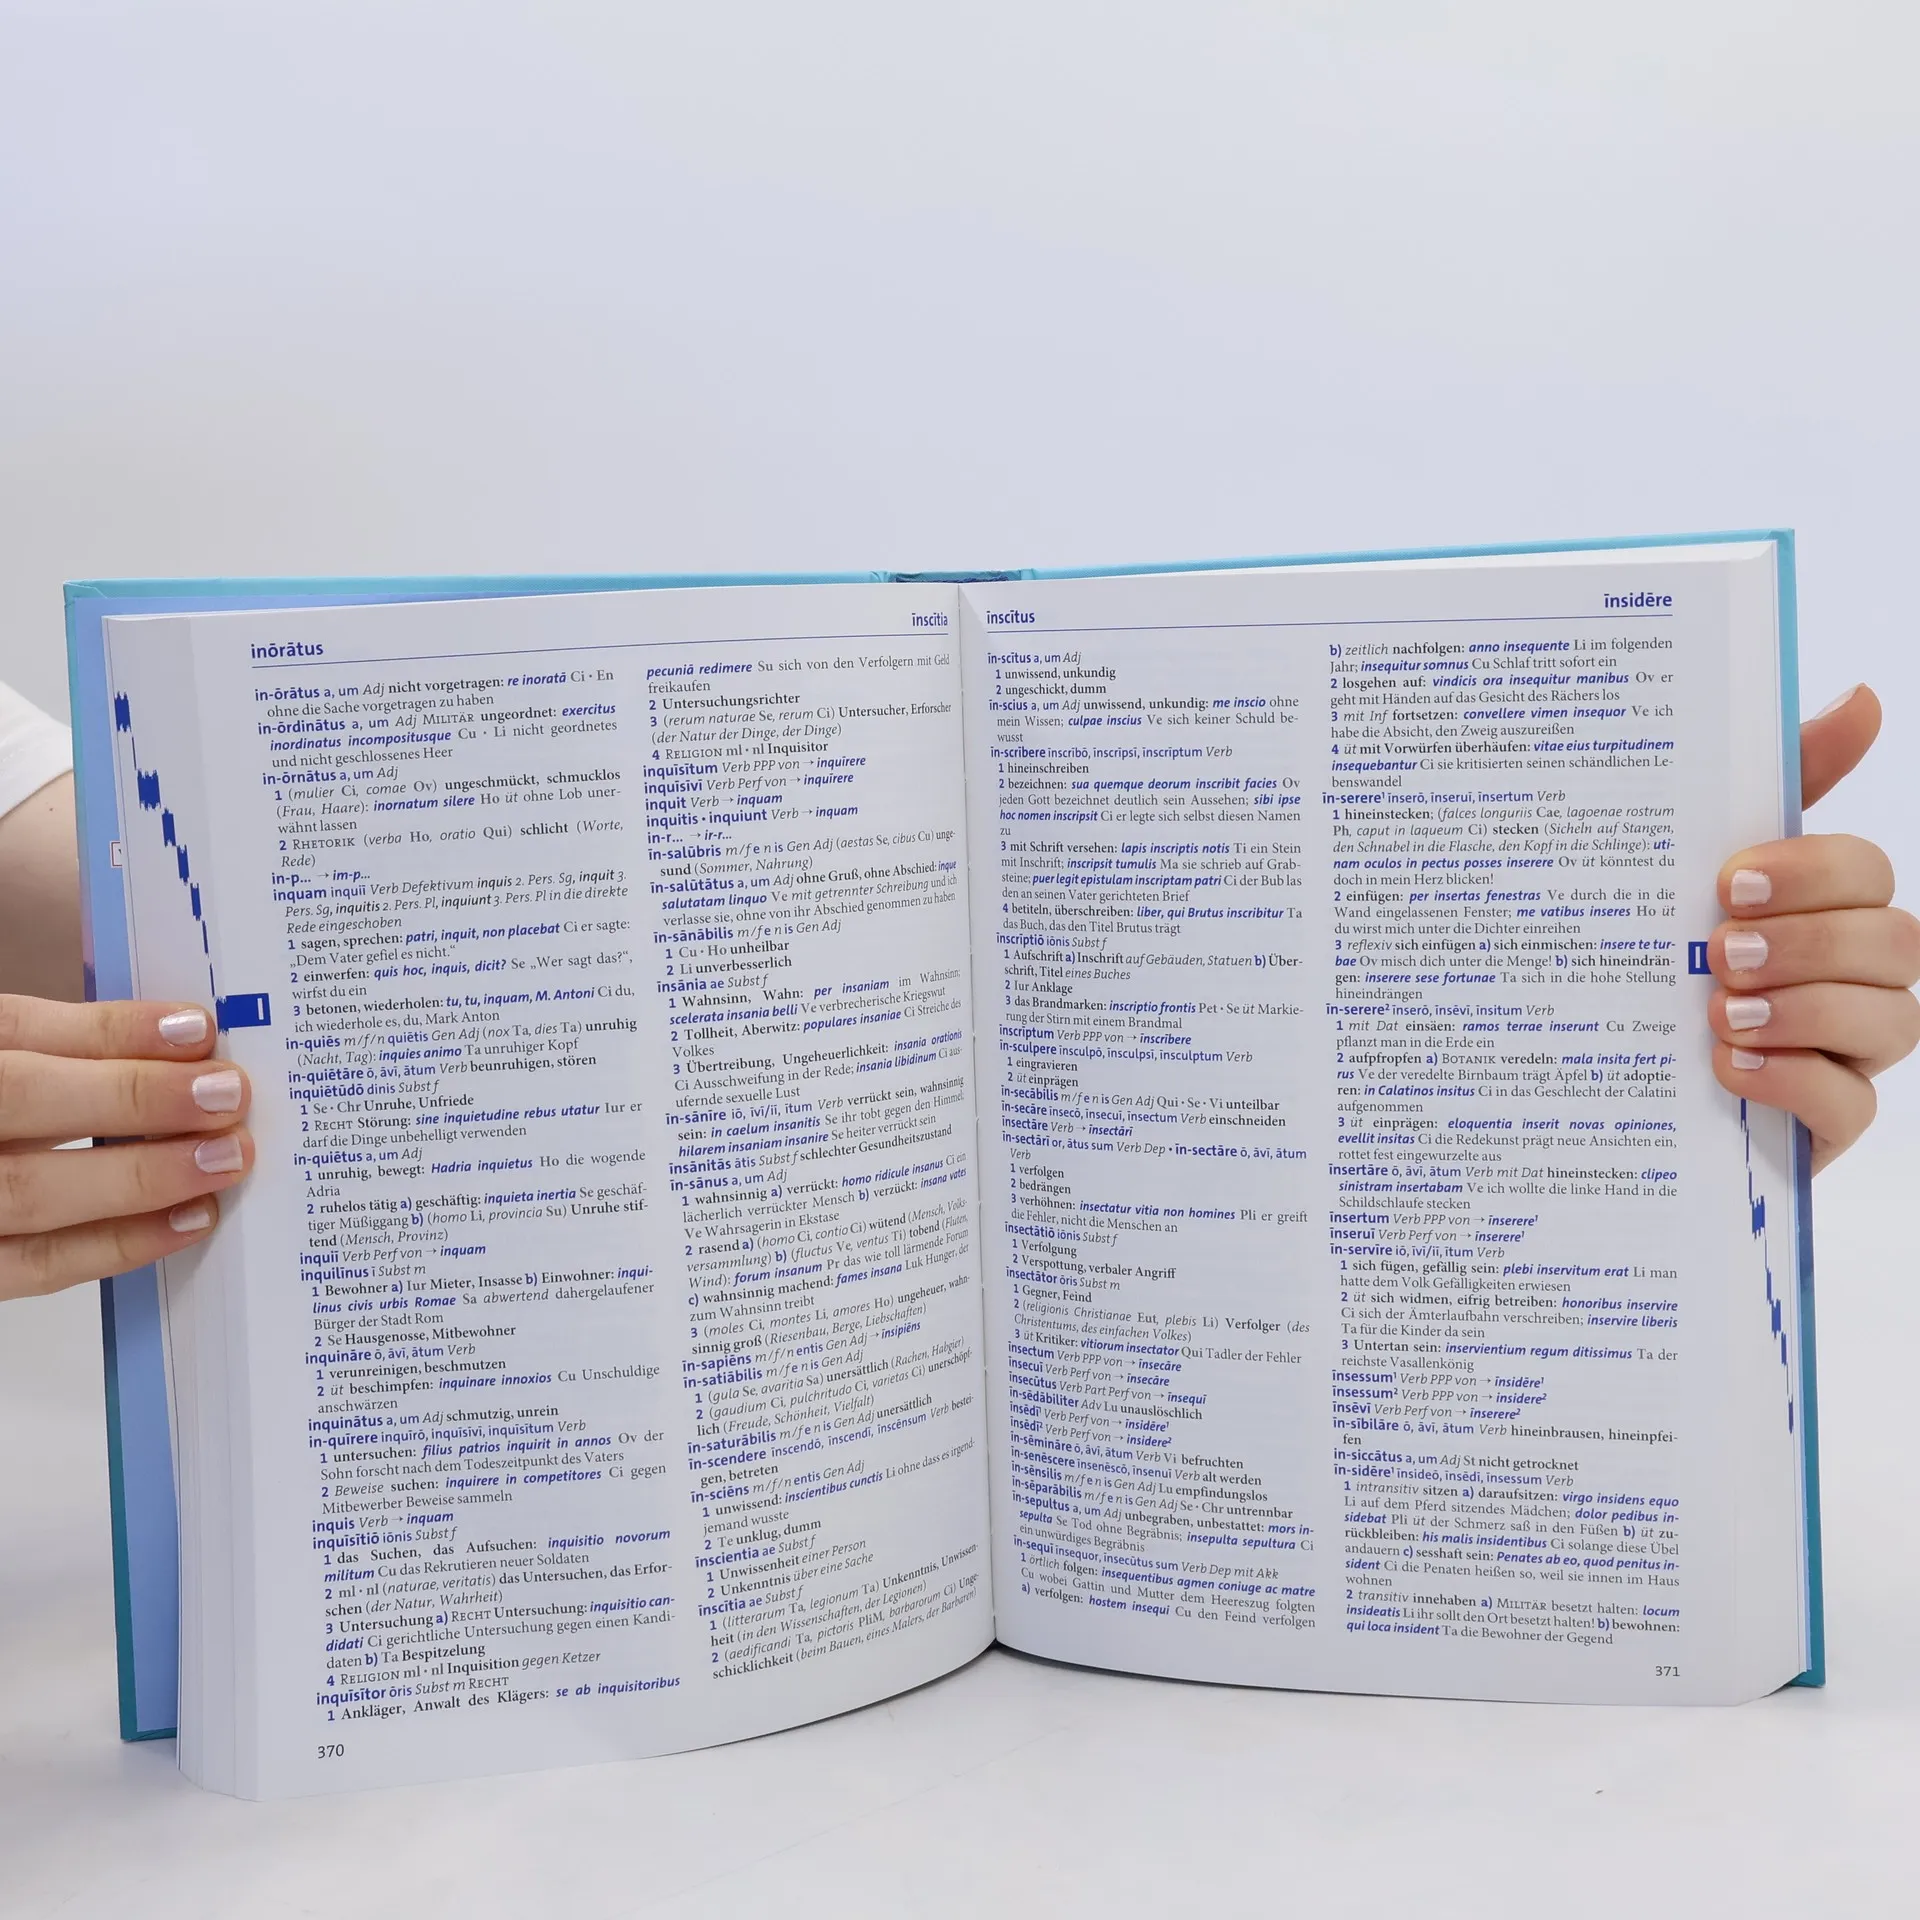 inōrātus
īnscītia
in-ōrātus a, um Adj nicht vorgetragen: re inoratā Ci · En
ohne die Sache vorgetragen zu haben
in-ōrdinātus a, um Adj MILITÄR ungeordnet: exercitus
inordinatus incompositusque Cu · Li nicht geordnetes
und nicht geschlossenes Heer
in-ōrnātus a, um Adj
1 (mulier Ci, comae Ov) ungeschmückt, schmucklos
(Frau, Haare): inornatum silere Ho üt ohne Lob uner-
wähnt lassen
2 RHETORIK (verba Ho, oratio Qui) schlicht (Worte,
Rede)
in-p... → im-p...
inquam inquiī Verb Defektivum inquis 2. Pers. Sg, inquit 3.
Pers. Sg, inquitis 2. Pers. Pl, inquiunt 3. Pers. Pl in die direkte
Rede eingeschoben
1 sagen, sprechen: patri, inquit, non placebat Ci er sagte:
„Dem Vater gefiel es nicht.“
2 einwerfen: quis hoc, inquis, dicit? Se „Wer sagt das?“,
wirfst du ein
3 betonen, wiederholen: tu, tu, inquam, M. Antoni Ci du,
ich wiederhole es, du, Mark Anton
in-quiēs m/f/n quiētis Gen Adj (nox Ta, dies Ta) unruhig
(Nacht, Tag): inquies animo Ta unruhiger Kopf
in-quiētāre ō, āvī, ātum Verb beunruhigen, stören
inquiētūdō dinis Subst f
1 Se · Chr Unruhe, Unfriede
2 RECHT Störung: sine inquietudine rebus utatur Iur er
darf die Dinge unbehelligt verwenden
in-quiētus a, um Adj
1 unruhig, bewegt: Hadria inquietus Ho die wogende
Adria
2 ruhelos tätig a) geschäftig: inquieta inertia Se geschäf-
tiger Müßiggang b) (homo Li, provincia Su) Unruhe stif-
tend (Mensch, Provinz)
inquiī Verb Perf von → inquam
inquilīnus ī Subst m
1 Bewohner a) Iur Mieter, Insasse b) Einwohner: inqui-
linus civis urbis Romae Sa abwertend dahergelaufener
Bürger der Stadt Rom
2 Se Hausgenosse, Mitbewohner
inquināre ō, āvī, ātum Verb
1 verunreinigen, beschmutzen
2 üt beschimpfen: inquinare innoxios Cu Unschuldige
anschwärzen
inquinātus a, um Adj schmutzig, unrein
in-quīrere inquīrō, inquīsīvī, inquīsītum Verb
1 untersuchen: filius patrios inquirit in annos Ov der
Sohn forscht nach dem Todeszeitpunkt des Vaters
2 Beweise suchen: inquirere in competitores Ci gegen
Mitbewerber Beweise sammeln
inquis Verb → inquam
inquīsītiō iōnis Subst f
1 das Suchen, das Aufsuchen: inquisitio novorum
militum Cu das Rekrutieren neuer Soldaten
2 ml · nl (naturae, veritatis) das Untersuchen, das Erfor-
schen (der Natur, Wahrheit)
3 Untersuchung a) RECHT Untersuchung: inquisitio can-
didati Ci gerichtliche Untersuchung gegen einen Kandi-
daten b) Ta Bespitzelung
4 RELIGION ml · nl Inquisition gegen Ketzer
inquīsītor ōris Subst m RECHT
1 Ankläger, Anwalt des Klägers: se ab inquisitoribus
pecuniā redimere Su sich von den Verfolgern mit Geld
freikaufen
2 Untersuchungsrichter
3 (rerum naturae Se, rerum Ci) Untersucher, Erforscher
(der Natur der Dinge, der Dinge)
4 RELIGION ml · nl Inquisitor
inquīsītum Verb PPP von → inquīrere
inquīsīvī Verb Perf von → inquīrere
inquit Verb → inquam
inquitis · inquiunt Verb → inquam
in-r... → ir-r...
īn-salūbris m/f e n is Gen Adj (aestas Se, cibus Cu) unge-
sund (Sommer, Nahrung)
īn-salūtātus a, um Adj ohne Gruß, ohne Abschied: inque
salutatam linquo Ve mit getrennter Schreibung und ich
verlasse sie, ohne von ihr Abschied genommen zu haben
īn-sānābilis m/f e n is Gen Adj
1 Cu · Ho unheilbar
2 Li unverbesserlich
īnsānia ae Subst f
1 Wahnsinn, Wahn: per insaniam im Wahnsinn;
scelerata insania belli Ve verbrecherische Kriegswut
2 Tollheit, Aberwitz: populares insaniae Ci Streiche des
Volkes
3 Übertreibung, Ungeheuerlichkeit: insania orationis
Ci Ausschweifung in der Rede; insania libidinum Ci aus-
ufernde sexuelle Lust
īn-sānīre iō, īvī/iī, ītum Verb verrückt sein, wahnsinnig
sein: in caelum insanitis Se ihr tobt gegen den Himmel;
hilarem insaniam insanire Se heiter verrückt sein
īnsānitās ātis Subst f schlechter Gesundheitszustand
īn-sānus a, um Adj
1 wahnsinnig a) verrückt: homo ridicule insanus Ci ein
lächerlich verrückter Mensch b) verzückt: insana vates
Ve Wahrsagerin in Ekstase
2 rasend a) (homo Ci, contio Ci) wütend (Mensch, Volks-
versammlung) b) (fluctus Ve, ventus Ti) tobend (Fluten,
Wind): forum insanum Pr das wie toll lärmende Forum
c) wahnsinnig machend: fames insana Luk Hunger, der
zum Wahnsinn treibt
3 (moles Ci, montes Li, amores Ho) ungeheuer, wahn-
sinnig groß (Riesenbau, Berge, Liebschaften)
īn-sapiēns m/f/n entis Gen Adj → īnsipiēns
īn-satiābilis m/f e n is Gen Adj
1 (gula Se, avaritia Sa) unersättlich (Rachen, Habgier)
2 (gaudium Ci, pulchritudo Ci, varietas Ci) unerschöpf-
lich (Freude, Schönheit, Vielfalt)
īn-saturābilis m/f e n is Gen Adj unersättlich
īn-scendere īnscendō, īnscendī, īnscēnsum Verb bestei-
gen, betreten
īn-sciēns m/f/n entis Gen Adj
1 unwissend: inscientibus cunctis Li ohne dass es irgend-
jemand wusste
2 Te unklug, dumm
īnscientia ae Subst f
1 Unwissenheit einer Person
2 Unkenntnis über eine Sache
īnscītia ae Subst f
1 (litterarum Ta, legionum Ta) Unkenntnis, Unwissen-
heit (in den Wissenschaften, der Legionen)
2 (aedificandi Ta, pictoris PliM, barbarorum Ci) Unge-
schicklichkeit (beim Bauen, eines Malers, der Barbaren)
I
370
īnscītus
īnsidēre
īn-scītus a, um Adj
1 unwissend, unkundig
2 ungeschickt, dumm
īn-scius a, um Adj unwissend, unkundig: me inscio ohne
mein Wissen; culpae inscius Ve sich keiner Schuld be-
wusst
īn-scrībere īnscrībō, īnscrīpsī, īnscrīptum Verb
1 hineinschreiben
2 bezeichnen: sua quemque deorum inscribit facies Ov
jeden Gott bezeichnet deutlich sein Aussehen; sibi ipse
hoc nomen inscripsit Ci er legte sich selbst diesen Namen
zu
3 mit Schrift versehen: lapis inscriptis notis Ti ein Stein
mit Inschrift; inscripsit tumulis Ma sie schrieb auf Grab-
steine; puer legit epistulam inscriptam patri Ci der Bub las
den an seinen Vater gerichteten Brief
4 betiteln, überschreiben: liber, qui Brutus inscribitur Ta
das Buch, das den Titel Brutus trägt
īnscrīptiō iōnis Subst f
1 Aufschrift a) Inschrift auf Gebäuden, Statuen b) Über-
schrift, Titel eines Buches
2 Iur Anklage
3 das Brandmarken: inscriptio frontis Pet · Se üt Markie-
rung der Stirn mit einem Brandmal
īnscrīptum Verb PPP von → īnscrībere
īn-sculpere īnsculpō, īnsculpsī, īnsculptum Verb
1 eingravieren
2 üt einprägen
īn-secābilis m/f e n is Gen Adj Qui · Se · Vi unteilbar
īn-secāre īnsecō, īnsecuī, īnsectum Verb einschneiden
īnsectāre Verb → īnsectārī
īn-sectārī or, ātus sum Verb Dep · īn-sectāre ō, āvī, ātum
Verb
1 verfolgen
2 bedrängen
3 verhöhnen: insectatur vitia non homines Pli er greift
die Fehler, nicht die Menschen an
īnsectātiō iōnis Subst f
1 Verfolgung
2 Verspottung, verbaler Angriff
īnsectātor ōris Subst m
1 Gegner, Feind
2 (religionis Christianae Eut, plebis Li) Verfolger (des
Christentums, des einfachen Volkes)
3 üt Kritiker: vitiorum insectator Qui Tadler der Fehler
īnsectum Verb PPP von → īnsecāre
īnsecuī Verb Perf von → īnsecāre
īnsecūtus Verb Part Perf von → īnsequī
īn-sēdābiliter Adv Lu unauslöschlich
īnsēdī¹ Verb Perf von → īnsidēre¹
īnsēdī² Verb Perf von → īnsīdere²
īn-sēmināre ō, āvī, ātum Verb Vi befruchten
īn-senēscere īnsenēscō, īnsenuī Verb alt werden
īn-sēnsilis m/f e n is Gen Adj Lu empfindungslos
īn-sēparābilis m/f e n is Gen Adj Se · Chr untrennbar
īn-sepultus a, um Adj unbegraben, unbestattet: mors in-
sepulta Se Tod ohne Begräbnis; insepulta sepultura Ci
ein unwürdiges Begräbnis
īn-sequī īnsequor, īnsecūtus sum Verb Dep mit Akk
1 örtlich folgen: insequentibus agmen coniuge ac matre
Cu wobei Gattin und Mutter dem Heereszug folgten
a) verfolgen: hostem insequi Cu den Feind verfolgen
b) zeitlich nachfolgen: anno insequente Li im folgenden
Jahr; insequitur somnus Cu Schlaf tritt sofort ein
2 losgehen auf: vindicis ora insequitur manibus Ov er
geht mit Händen auf das Gesicht des Rächers los
3 mit Inf fortsetzen: convellere vimen insequor Ve ich
habe die Absicht, den Zweig auszureißen
4 üt mit Vorwürfen überhäufen: vitae eius turpitudinem
insequebantur Ci sie kritisierten seinen schändlichen Le-
benswandel
īn-serere¹ īnserō, īnseruī, īnsertum Verb
1 hineinstecken; (falces longuriis Cae, lagoenae rostrum
Ph, caput in laqueum Ci) stecken (Sicheln auf Stangen,
den Schnabel in die Flasche, den Kopf in die Schlinge): uti-
nam oculos in pectus posses inserere Ov üt könntest du
doch in mein Herz blicken!
2 einfügen: per insertas fenestras Ve durch die in die
Wand eingelassenen Fenster; me vatibus inseres Ho üt
du wirst mich unter die Dichter einreihen
3 reflexiv sich einfügen a) sich einmischen: insere te tur-
bae Ov misch dich unter die Menge! b) sich hineindrän-
gen: inserere sese fortunae Ta sich in die hohe Stellung
hineindrängen
īn-serere² īnserō, īnsēvī, īnsitum Verb
1 mit Dat einsäen: ramos terrae inserunt Cu Zweige
pflanzt man in die Erde ein
2 aufpfropfen a) BOTANIK veredeln: mala insita fert pi-
rus Ve der veredelte Birnbaum trägt Äpfel b) üt adoptie-
ren: in Calatinos insitus Ci in das Geschlecht der Calatini
aufgenommen
3 üt einprägen: eloquentia inserit novas opiniones,
evellit insitas Ci die Redekunst prägt neue Ansichten ein,
rottet fest eingewurzelte aus
īnsertāre ō, āvī, ātum Verb mit Dat hineinstecken: clipeo
sinistram insertabam Ve ich wollte die linke Hand in die
Schildschlaufe stecken
īnsertum Verb PPP von → īnserere¹
īnseruī Verb Perf von → īnserere¹
īn-servīre iō, īvī/iī, ītum Verb
1 sich fügen, gefällig sein: plebi inservitum erat Li man
hatte dem Volk Gefälligkeiten erwiesen
2 üt sich widmen, eifrig betreiben: honoribus inservire
Ci sich der Ämterlaufbahn verschreiben; inservire liberis
Ta für die Kinder da sein
3 Untertan sein: inservientium regum ditissimus Ta der
reichste Vasallenkönig
īnsessum¹ Verb PPP von → īnsidēre¹
īnsessum² Verb PPP von → īnsīdere²
īnsēvī Verb Perf von → īnserere²
īn-sībilāre ō, āvī, ātum Verb hineinbrausen, hineinpfei-
fen
īn-siccātus a, um Adj St nicht getrocknet
īn-sidēre¹ īnsideō, īnsēdī, īnsessum Verb
1 intransitiv sitzen a) daraufsitzen: virgo insidens equo
Li auf dem Pferd sitzendes Mädchen; dolor pedibus in-
sidebat Pli üt der Schmerz saß in den Füßen b) üt zu-
rückbleiben: his malis insidentibus Ci solange diese Übel
andauern c) sesshaft sein: Penates ab eo, quod penitus in-
sident Ci die Penaten heißen so, weil sie innen im Haus
wohnen
2 transitiv innehaben a) MILITÄR besetzt halten: locum
insideatis Li ihr sollt den Ort besetzt halten! b) bewohnen:
qui loca insident Ta die Bewohner der Gegend
I
371